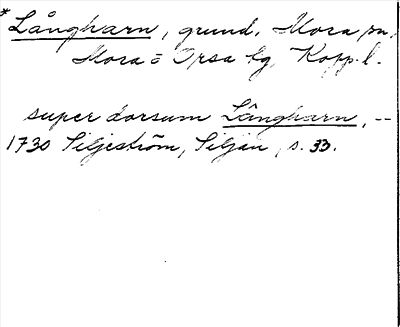 * Långharn, grund. Mora sn,
Mora o Orsa tg, Kopp. l.
super dorsum Långharn, --
1730 Siljeström, Siljan, s. 33.